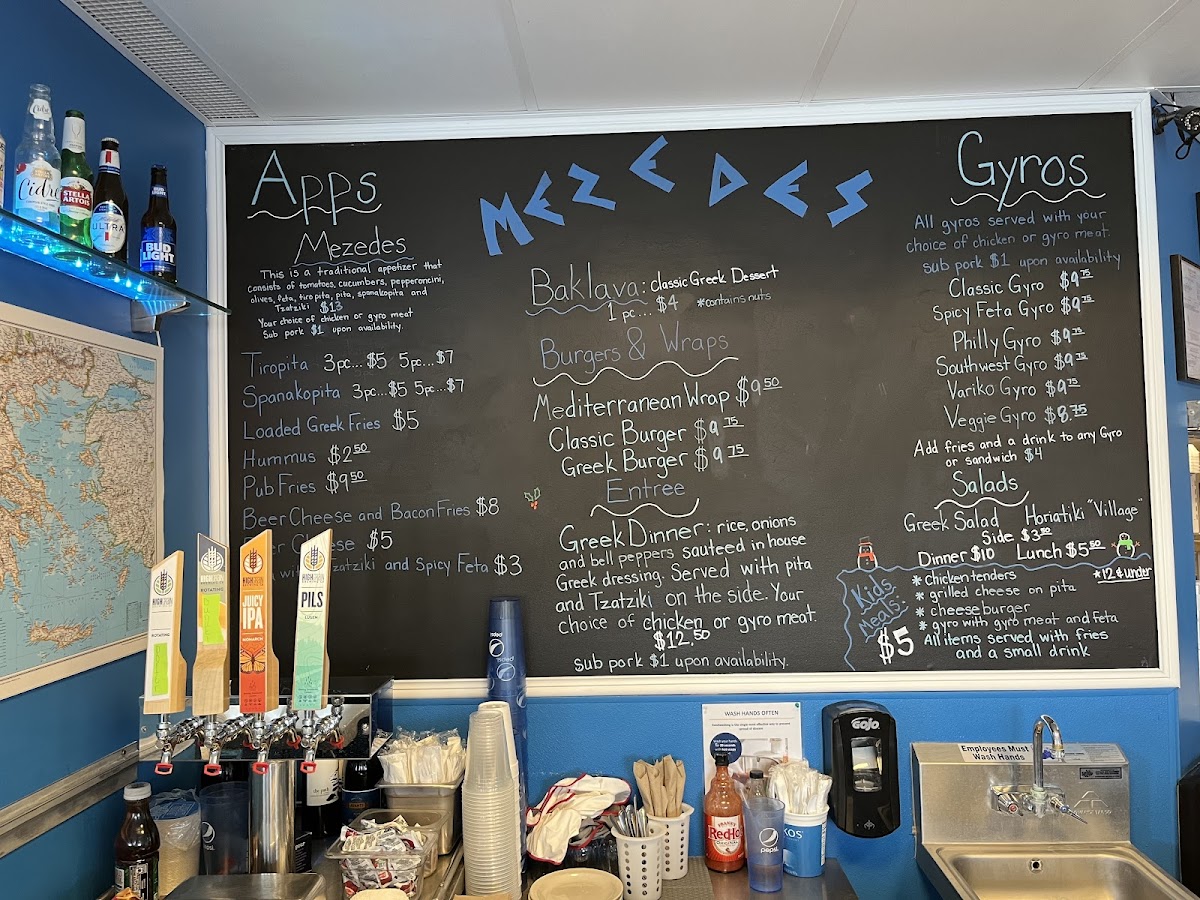 Apps
Mezedes
This is a traditional appetizer that
consists of tomatoes, cucumbers, pepperoncini,
olives, feta, tiropita, pita, spanakopita and
Tzatziki $13
Your choice of chicken or gyro meat
Sub pork $1 upon availability.
Tiropita 3pc... $5 5pc...$7
Spanakopita 3pc...$5 5pc...$7
Loaded Greek Fries $5
Hummus $2.50
Pub Fries $9.50
Beer Cheese and Bacon Fries $8
Cheese $5
Tzatziki and Spicy Feta $3
MEZEDES
Baklava: classic Greek Dessert
1 pc... $4 *contains nuts
Burgers & Wraps
Mediterranean Wrap $9.50
Classic Burger $9.75
Greek Burger $9.75
Entree
Greek Dinner: rice, onions
and bell peppers sauteed in house
Greek dressing. Served with pita
and Tzatziki on the side. Your
choice of chicken or gyro meat.
$12.50
sub pork $1 upon availability.
Gyros
All gyros served with your
choice of chicken or gyro meat.
sub pork $1 upon availability
Classic Gyro $9.75
Spicy Feta Gyro $9.75
Philly Gyro $9.75
Southwest Gyro $9.75
Variko Gyro $9.75
Veggie Gyro $8.75
Add fries and a drink to any Gyro
or sandwich $4
Salads
Greek Salad Horiatiki "Village"
Side $3.50
Dinner $10 Lunch $5.50
Kids
Meals:
$5
*12 & under
* chicken tenders
* grilled cheese on pita
* cheeseburger
* gyro with gyro meat and feta
All items served with fries
and a small drink
Cidre
STELLA
ARTOIS
ULTRA
BUD
LIGHT
HIGH GRAIN
ROTATING
HIGH GRAIN
ROTATING
HIGH GRAIN
JUICY
IPA
MONARCH
HIGH GRAIN
PILS
LUSCH
pepsi
WASH HANDS OFTEN
GOJO
Employees Must
Wash Hands
FRANK'S
RedHot
ORIGINAL
pepsi